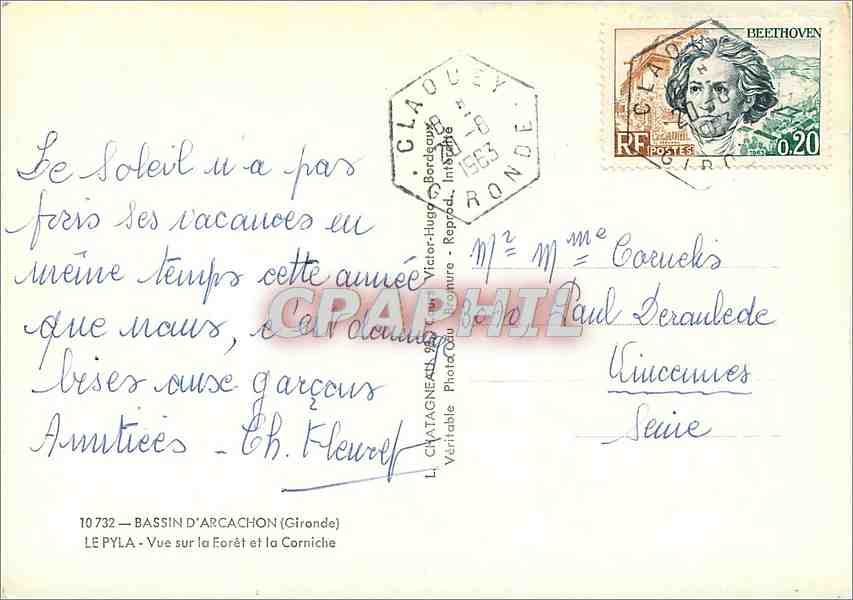 Le Soleil n'a pas
pris ses vacances en
même temps cette année
que nous, c'est dommage
bises aux garçons
Amitiés - Ch. Fleuret
10 732 — BASSIN D'ARCACHON (Gironde)
LE PYLA - Vue sur la Forêt et la Corniche
L. CHATAGNEAU, Victor-Hugo - Bordeaux
Véritable Photo au Bromure - Reprod. Interdite
CLAOUEY
18 H
20-8
1963
GIRONDE
BEETHOVEN
RF
POSTES
0,20
1963
CLAOUEY
20-8
1963
GIRONDE
Mr Mme Cornelis
Paul Deroulede
Vincennes
Seine
CPAPHIL.com